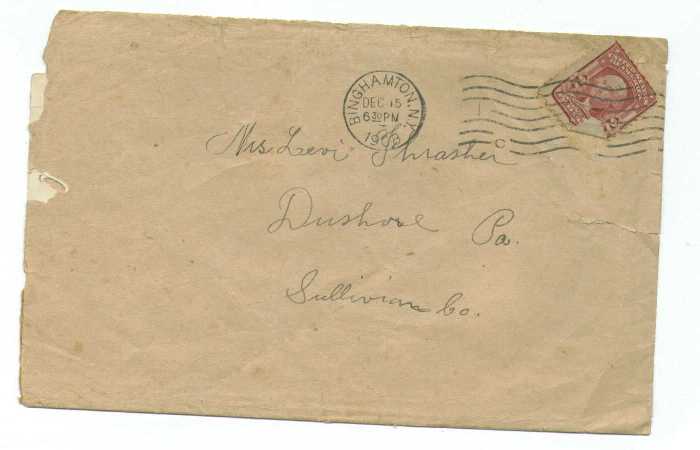 BINGHAMTON, N.Y.
DEC 15
630PM
1908
Mrs Levi Thrasher
Dushore Pa.
Sullivian Co.